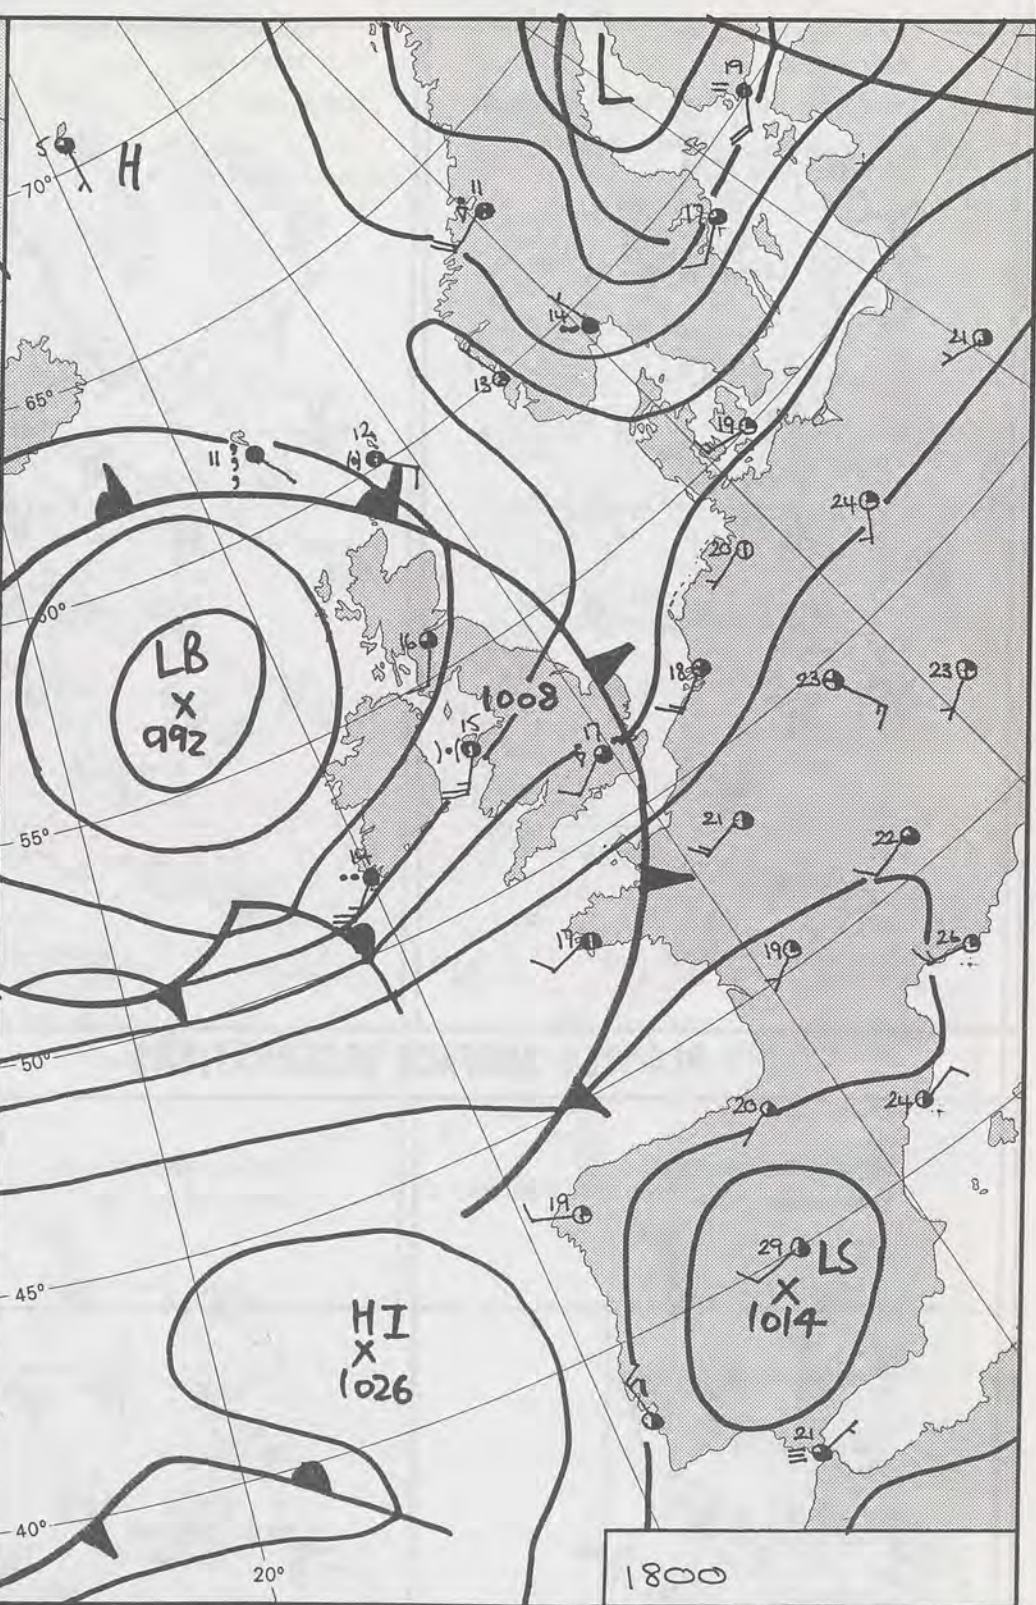 L
19
5
H
70°
11
17
14
21
13
65°
19
12
11
24
20
60°
LB
X
992
16
18
23
23
1008
15
17
55°
21
22
14
17
19
26
50°
20
24
19
29
LS
X
1014
45°
HI
X
1026
21
40°
20°
1800